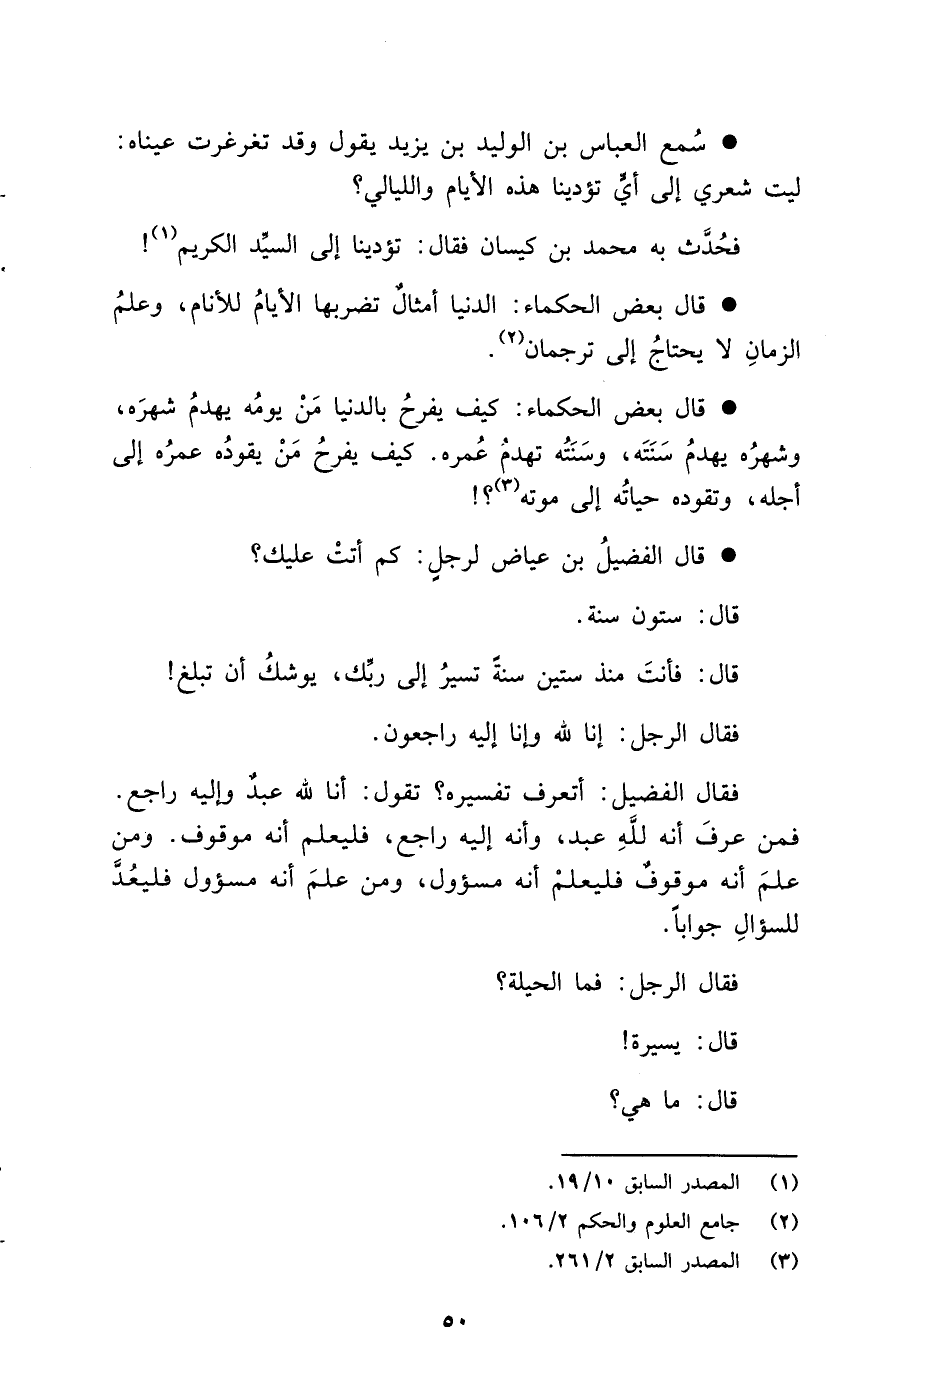 ● سُمع العباس بن الوليد بن يزيد يقول وقد تغرغرت عيناه:
ليت شعري إلى أيٍّ تؤدينا هذه الأيام والليالي؟
فحُدَّث به محمد بن كيسان فقال: تؤدينا إلى السيِّد الكريم(١)!
● قال بعض الحكماء: الدنيا أمثالٌ تضربها الأيامُ للأنام، وعلمُ
الزمانِ لا يحتاجُ إلى ترجمان(٢).
● قال بعض الحكماء: كيف يفرحُ بالدنيا مَنْ يومُه يهدمُ شهرَه،
وشهرُه يهدمُ سَنَتَه، وسَنَتُه تهدمُ عُمره. كيف يفرحُ مَنْ يقودُه عمرُه إلى
أجله، وتقوده حياتُه إلى موته(٣)؟!
● قال الفضيلُ بن عياض لرجلٍ: كم أتتْ عليك؟
قال: ستون سنة.
قال: فأنتَ منذ ستين سنةً تسيرُ إلى ربِّك، يوشكُ أن تبلغ!
فقال الرجل: إنا لله وإنا إليه راجعون.
فقال الفضيل: أتعرف تفسيره؟ تقول: أنا لله عبدٌ وإليه راجع.
فمن عرفَ أنه للَّهِ عبد، وأنه إليه راجع، فليعلم أنه موقوف. ومن
علمَ أنه موقوفٌ فليعلمْ أنه مسؤول، ومن علمَ أنه مسؤول فليعُدَّ
للسؤالِ جواباً.
فقال الرجل: فما الحيلة؟
قال: يسيرة!
قال: ما هي؟
(١) المصدر السابق ١٩/١٠.
(٢) جامع العلوم والحكم ١٠٦/٢.
(٣) المصدر السابق ٢٦١/٢.
٥٠